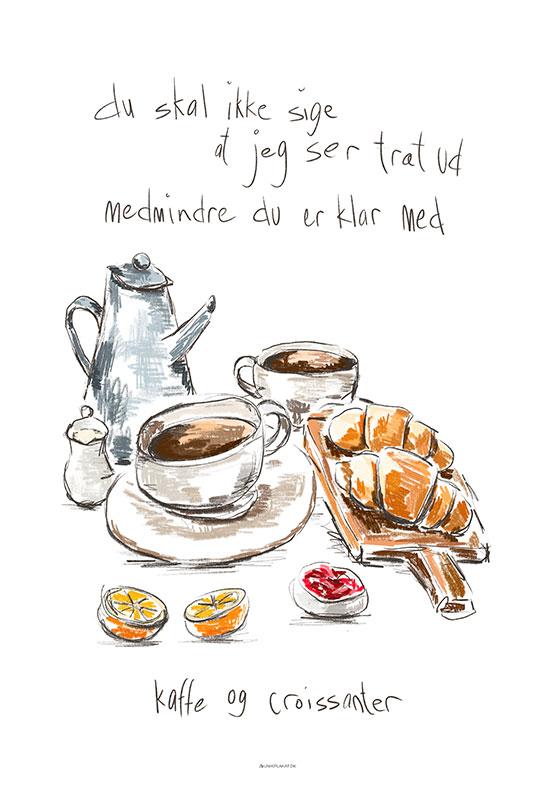 du skal ikke sige
at jeg ser træt ud
medmindre du er klar med
kaffe og croissanter